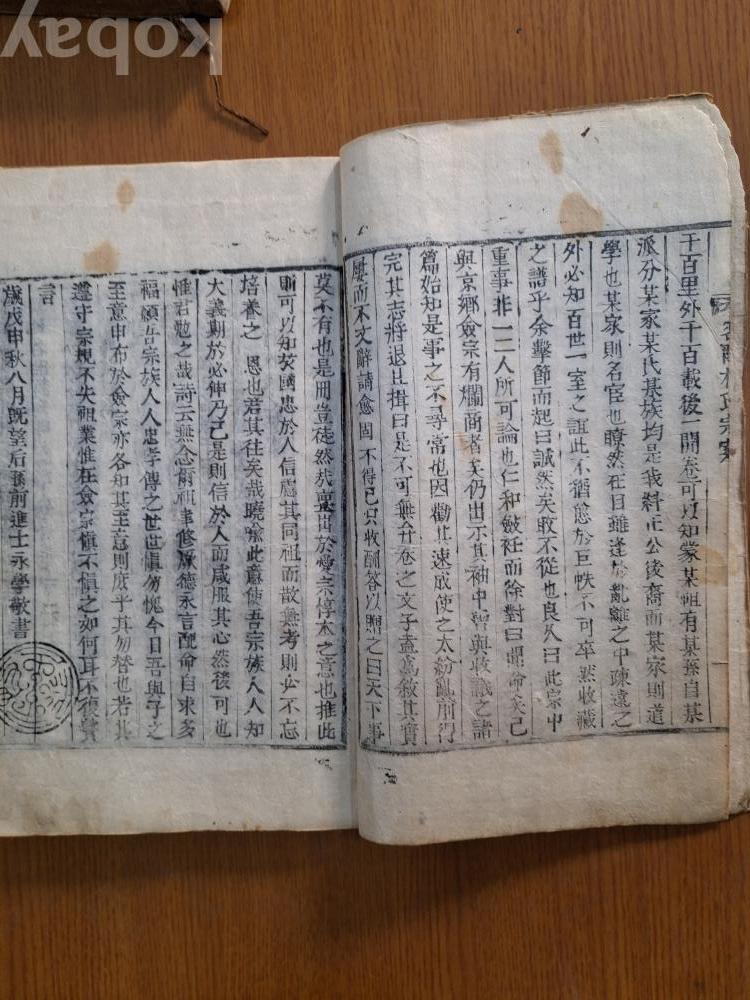 kobay
千百里外千百載後一開卷可以知蒙某祖有某孫自某
派分某家某氏某族均是我料正公後裔而某家則道
學也某家則名宦也瞭然在目雖逢於亂離之中疎遠之
外必知百世一室之誼此不猶愈於巨帙不可卒然收藏
之譜乎余擊節而起曰誠然矣敢不從也良久曰此宗中
重事非一二人所可論也仁和斂衽而徐對曰聞命矣已
與京鄕僉宗有爛商者矣仍出示其袖中譜與收議之諸
篇始知是事之不尋常也因勸其速成使之太紛亂前門
完其志將退止揖曰是不可無弁卷之文子盍爲敘其實
屢而不文辭請愈固不得已只收酬答以贈之曰天下事
莫不有也是冊豈徒然哉亶出於愛宗惇本之意也推此
則可以知於國忠於人信處其同祖而散無考則必不忘
培養之恩也君其往矣哉曉喩此意使吾宗族人人知
大義期於必伸乃已是則信於人而咸服其心然後可也
惟君勉之哉詩云無念爾祖聿修厥德永言配命自求多
福願吾宗族人人忠孝傳之世世愼勿愧今日吾與子之
至意申布於僉宗亦各知其至意則庶乎其勿替也若其
遵守宗規不失祖業惟在僉宗愼不愼之如何耳不復贅
言
歲戊申秋八月旣望后孫前進士永學敬書